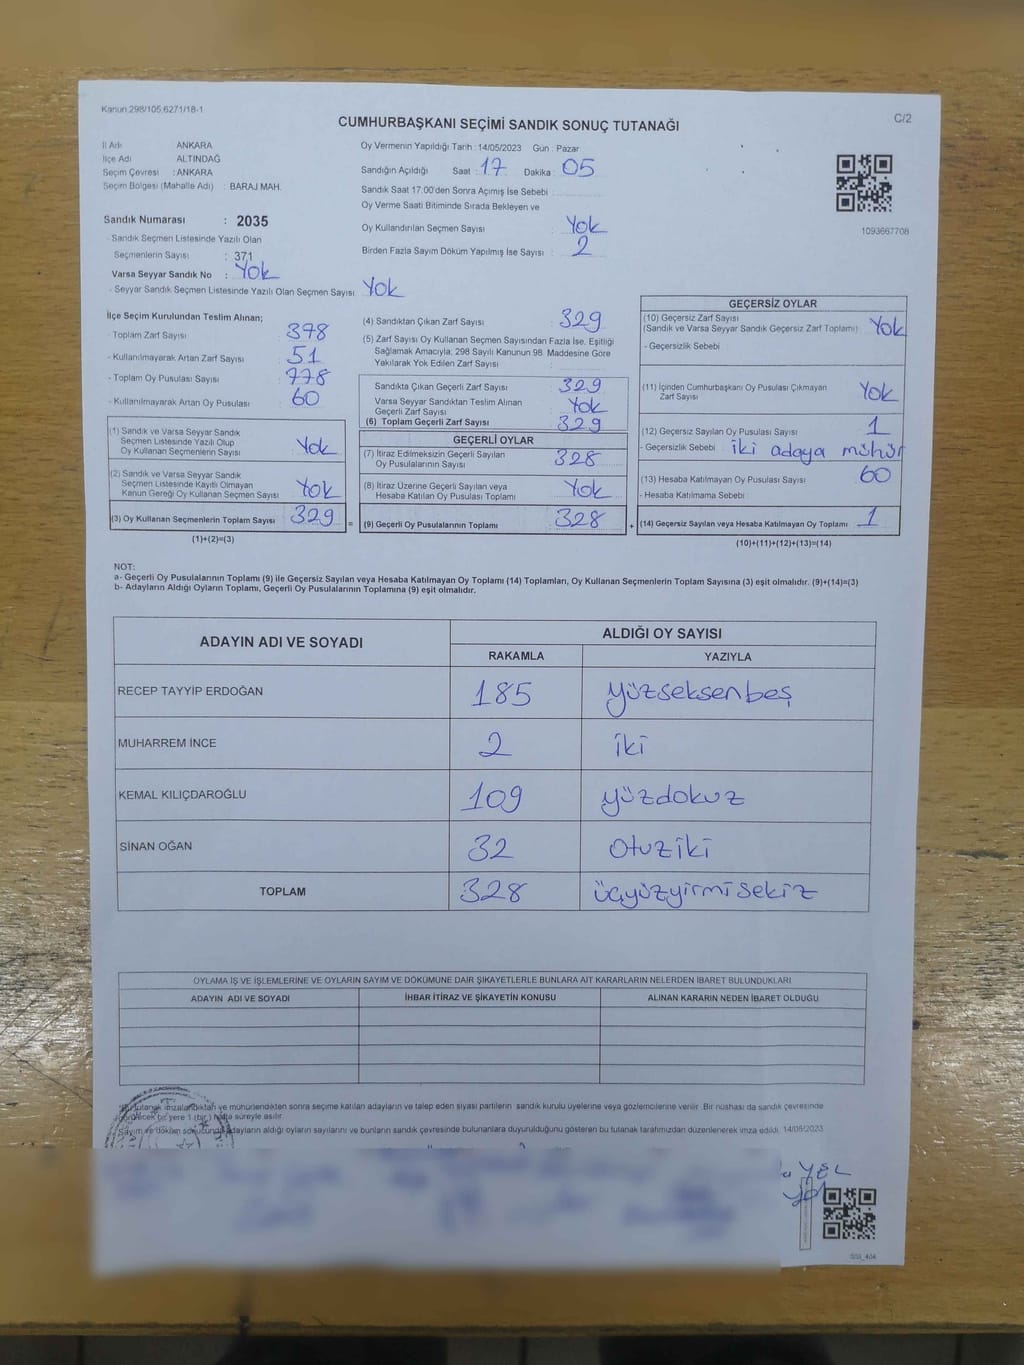 Kanun 298/105,6271/18-1
C/2
CUMHURBAŞKANI SEÇİMİ SANDIK SONUÇ TUTANAĞI
İl Adı ANKARA
İlçe Adı ALTINDAĞ
Seçim Çevresi : ANKARA
Seçim Bölgesi (Mahalle Adı) : BARAJ MAH.
Sandık Numarası : 2035
- Sandık Seçmen Listesinde Yazılı Olan
Seçmenlerin Sayısı : 371
Varsa Seyyar Sandık No : Yok
- Seyyar Sandık Seçmen Listesinde Yazılı Olan Seçmen Sayısı Yok
Oy Vermenin Yapıldığı Tarih : 14/05/2023 Gün : Pazar
Sandığın Açıldığı Saat : 17 Dakika : 05
Sandık Saat 17.00'den Sonra Açımış İse Sebebi :
Oy Verme Saati Bitiminde Sırada Bekleyen ve
Oy Kullandırılan Seçmen Sayısı : Yok
Birden Fazla Sayım Döküm Yapılmış İse Sayısı : 2
1093667708
İlçe Seçim Kurulundan Teslim Alınan;
- Toplam Zarf Sayısı : 378
- Kullanılmayarak Artan Zarf Sayısı : 51
- Toplam Oy Pusulası Sayısı : 778
- Kullanılmayarak Artan Oy Pusulası : 60
(1) Sandık ve Varsa Seyyar Sandık
Seçmen Listesinde Yazılı Olup
Oy Kullanan Seçmenlerin Sayısı : Yok
(2) Sandık ve Varsa Seyyar Sandık
Seçmen Listesinde Kayıtlı Olmayan
Kanun Gereği Oy Kullanan Seçmen Sayısı : Yok
(3) Oy Kullanan Seçmenlerin Toplam Sayısı : 329 =
(1)+(2)=(3)
(4) Sandıktan Çıkan Zarf Sayısı : 329
(5) Zarf Sayısı Oy Kullanan Seçmen Sayısından Fazla İse, Eşitliği
Sağlamak Amacıyla; 298 Sayılı Kanunun 98. Maddesine Göre
Yakılarak Yok Edilen Zarf Sayısı :
Sandıkta Çıkan Geçerli Zarf Sayısı : 329
Varsa Seyyar Sandıktan Teslim Alınan
Geçerli Zarf Sayısı : Yok
(6) Toplam Geçerli Zarf Sayısı : 329
GEÇERLİ OYLAR
(7) İtiraz Edilmeksizin Geçerli Sayılan
Oy Pusulalarının Sayısı : 328
(8) İtiraz Üzerine Geçerli Sayılan veya
Hesaba Katılan Oy Pusulası Toplamı : Yok
(9) Geçerli Oy Pusulalarının Toplamı : 328 +
GEÇERSİZ OYLAR
(10) Geçersiz Zarf Sayısı
(Sandık ve Varsa Seyyar Sandık Geçersiz Zarf Toplamı) : Yok
- Geçersizlik Sebebi :
(11) İçinden Cumhurbaşkanı Oy Pusulası Çıkmayan
Zarf Sayısı : Yok
(12) Geçersiz Sayılan Oy Pusulası Sayısı : 1
- Geçersizlik Sebebi : iki adaya mühür
(13) Hesaba Katılmayan Oy Pusulası Sayısı : 60
- Hesaba Katılmama Sebebi :
(14) Geçersiz Sayılan veya Hesaba Katılmayan Oy Toplamı : 1
(10)+(11)+(12)+(13)=(14)
NOT:
a- Geçerli Oy Pusulalarının Toplamı (9) ile Geçersiz Sayılan veya Hesaba Katılmayan Oy Toplamı (14) Toplamları, Oy Kullanan Seçmenlerin Toplam Sayısına (3) eşit olmalıdır. (9)+(14)=(3)
b- Adayların Aldığı Oyların Toplamı, Geçerli Oy Pusulalarının Toplamına (9) eşit olmalıdır.
ADAYIN ADI VE SOYADI ALDIĞI OY SAYISI
RAKAMLA YAZIYLA
RECEP TAYYİP ERDOĞAN 185 yüzseksenbeş
MUHARREM İNCE 2 iki
KEMAL KILIÇDAROĞLU 109 yüzdokuz
SİNAN OĞAN 32 Otuziki
TOPLAM 328 üçyüzyirmisekiz
OYLAMA İŞ VE İŞLEMLERİNE VE OYLARIN SAYIM VE DÖKÜMÜNE DAİR ŞİKAYETLERLE BUNLARA AİT KARARLARIN NELERDEN İBARET BULUNDUKLARI
ADAYIN ADI VE SOYADI İHBAR İTİRAZ VE ŞİKAYETİN KONUSU ALINAN KARARIN NEDEN İBARET OLDUĞU
tutanak imzalandıktan ve mühürlendikten sonra seçime katılan adayların ve talep eden siyasi partilerin sandık kurulu üyelerine veya gözlemcilerine verilir. Bir nüshası da sandık çevresinde
bir yere 1 (bir) hafta süreyle asılır.
Sayım ve döküm sonucunda adayların aldığı oyların sayılarını ve bunların sandık çevresinde bulunanlara duyurulduğunu gösteren bu tutanak tarafımızdan düzenlenerek imza edildi. 14/05/2023
YEL